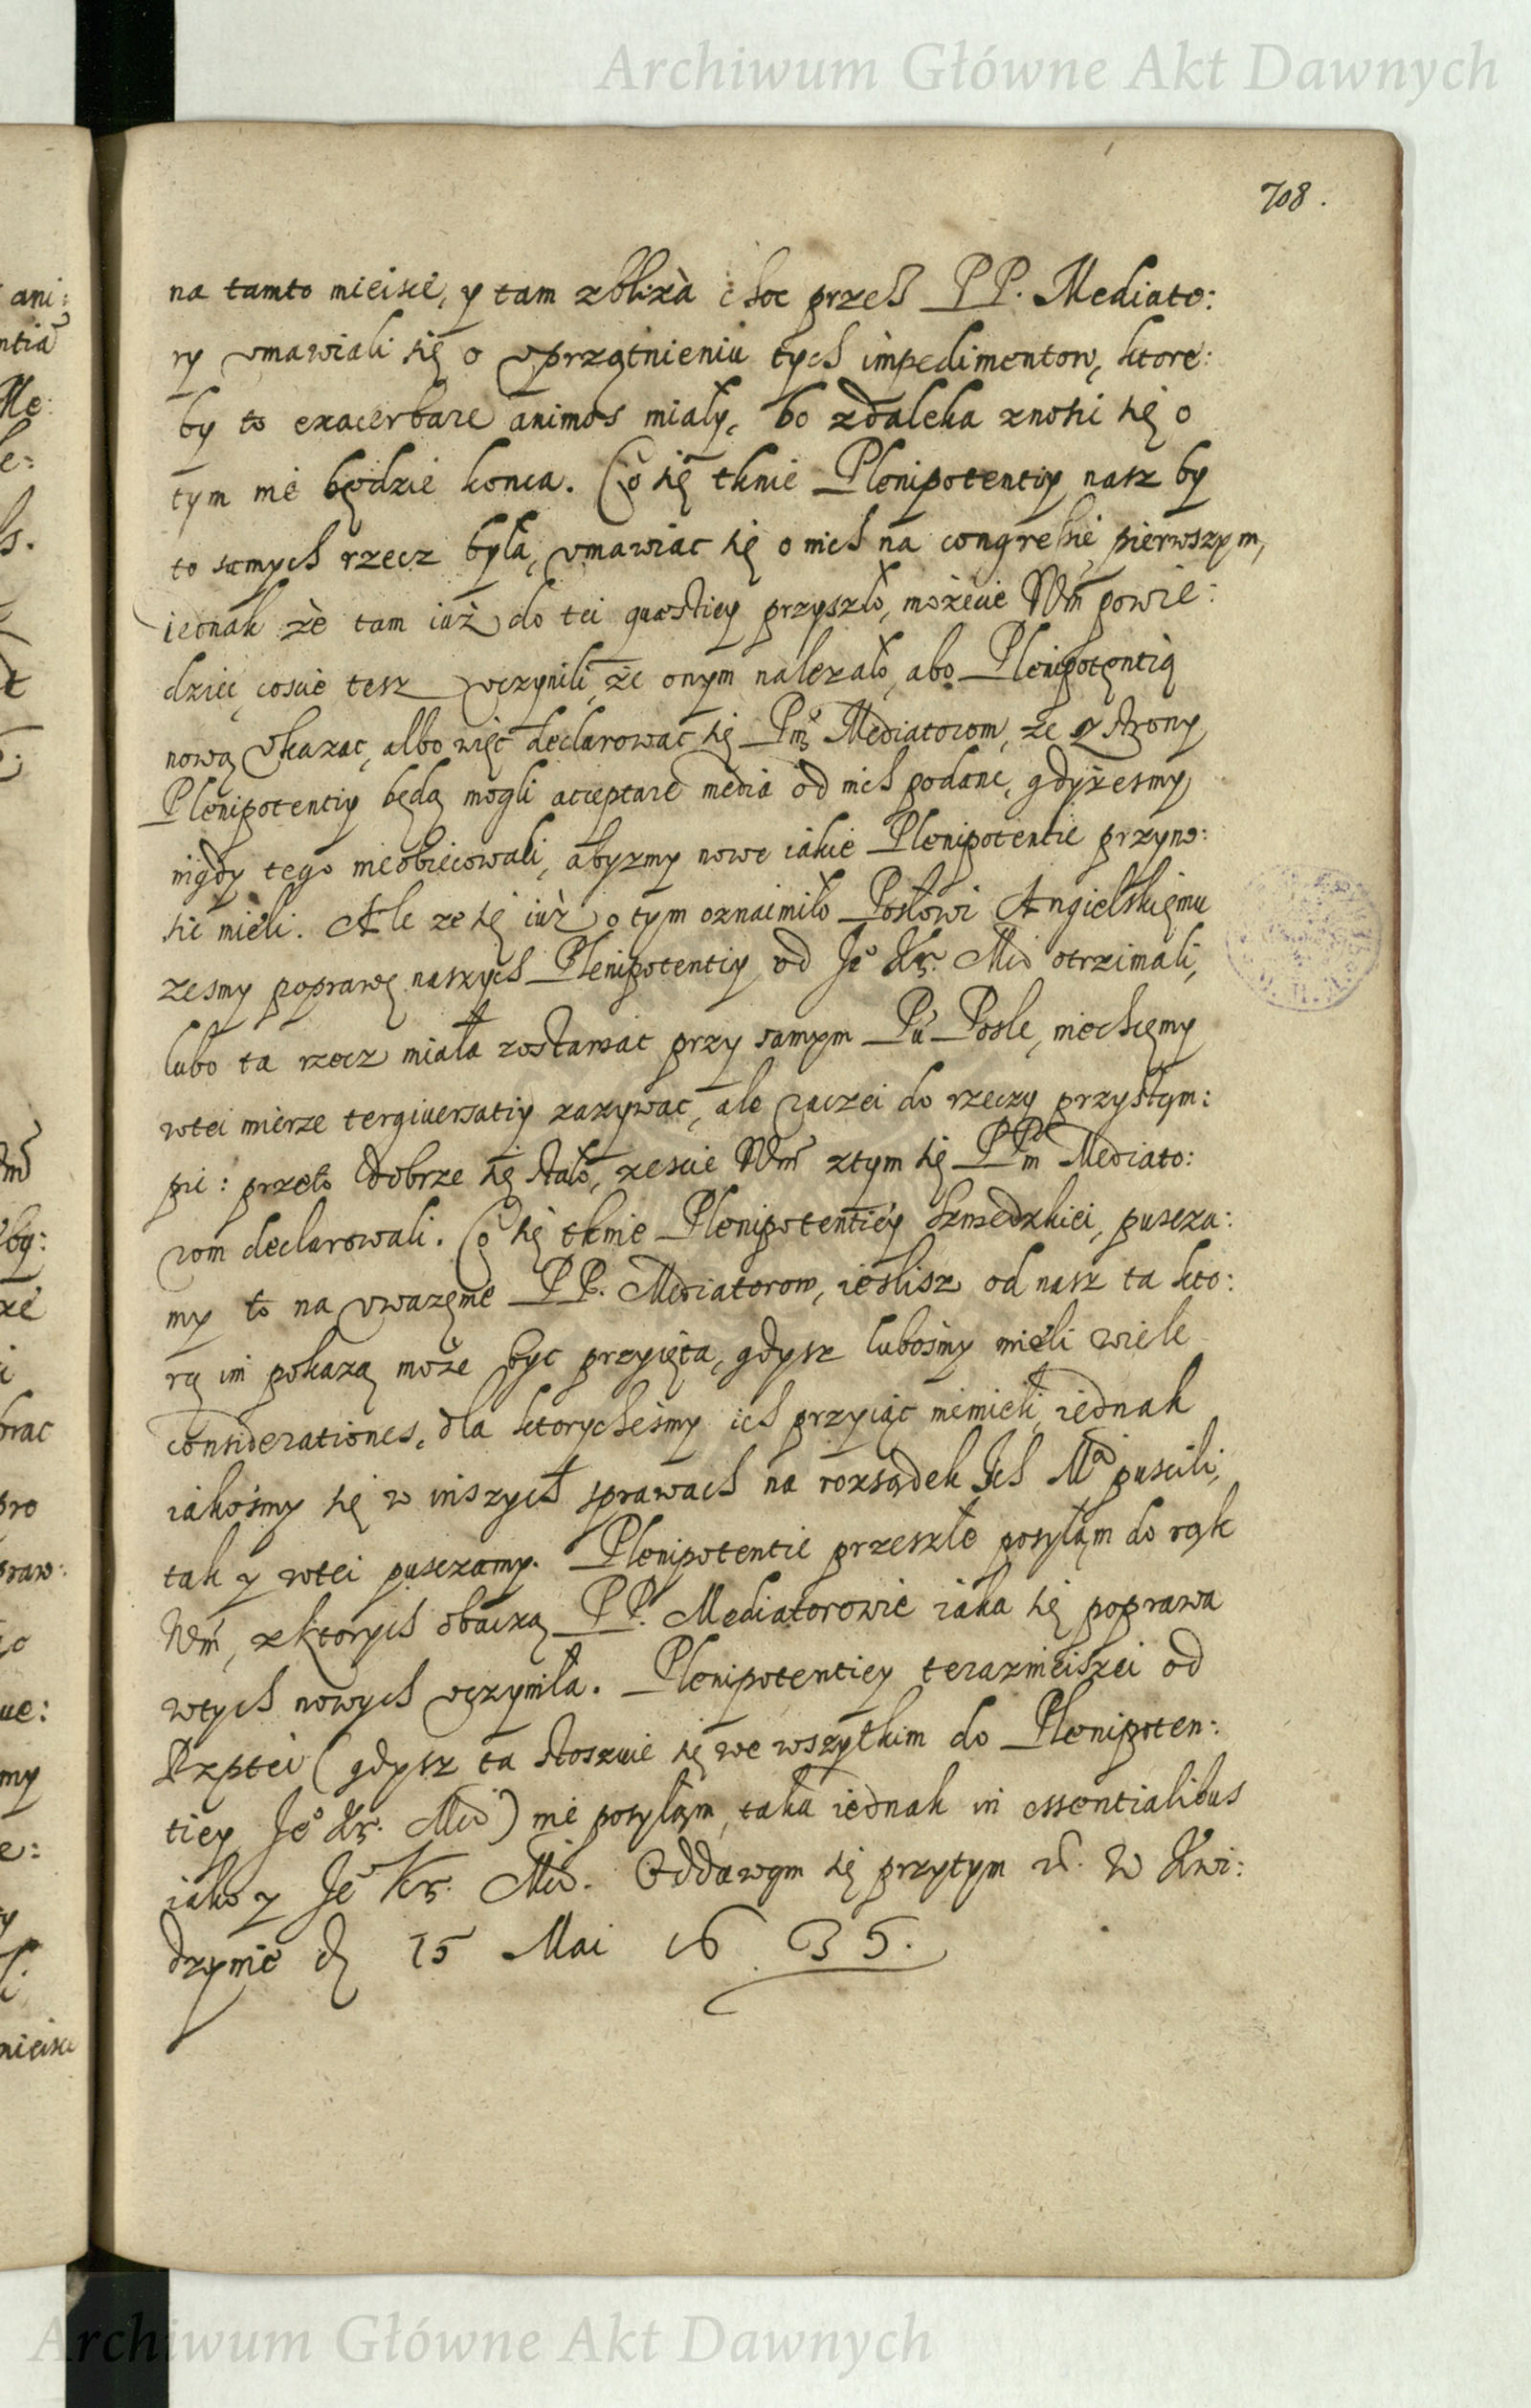 Archiwum Główne Akt Dawnych
708.
na tamto mieisce, y tam zbliza choc przes PP. Mediato:
ry umawiali się o uprzątnieniu tych impedimentow, ktore:
by to exacerbare animos miały, bo zdaleka znosic się o
tym nie będzie konca. Co się tknie Plenipotentiy nasz by
to samych rzecz była, umawiac się o nich na congressie pierwszym,
iednak że tam iuż do tei quæstiey przyszło, możecie Wm powie:
dziec, coscie tesz uczynili, że onym nalezało, abo Plenipotentią
nową ukazac, albo więc declarowac się Pm Mediatorom, że z strony
Plenipotentiy będą mogli acceptare media od nich podane, gdyżesmy
nigdy tego nieobiecowali, abyzmy nowe iakie Plenipotentie przyno:
sic mieli. Ale ze się iuż o tym oznaimiło Posłowi Angielskiemu
zesmy poprawę naszych Plenipotentiy od Je° Kr. Mci otrzimali,
lubo ta rzecz miała zostawac przy samym Pu Posle, niechcemy
wtei mierze tergiuersatiy zazywac, ale raczei do rzeczy przystąm:
pic: przeto dobrze się stało, zescie Wm ztym się PPm Mediato:
rom declarowali. Co się tknie Plenipotentiey Szwedzkiei, puscza:
my to na uwazęnie PP. Mediatorow, ieslisz od nasz ta kto:
rą im pokazą może byc przyięta, gdysz lubosmy mieli wiele
considerationes, dla ktorychesmy ich przyiąc niemieli, iednak
iakosmy się w inszych sprawach na rozsądek Ich M puscili,
tak y wtei pusczamy. Plenipotentie przeszłe posyłąm do rąk
Wm, zktorych obaczą PP. Mediatorowie iaka się poprawa
wtych nowych uczyniła. Plenipotentiey teraznieiszei od
Rzptei (gdysz ta stosuie się we wszytkim do Plenipoten:
tiey Je° Kr. Mci) nie posyłąm, taka iednak in essentialibus
iako y Je° Kr. Mci. Oddawąm się przytym &. W Kwi:
dzynie d 15 Mai 1635.
Archiwum Główne Akt Dawnych